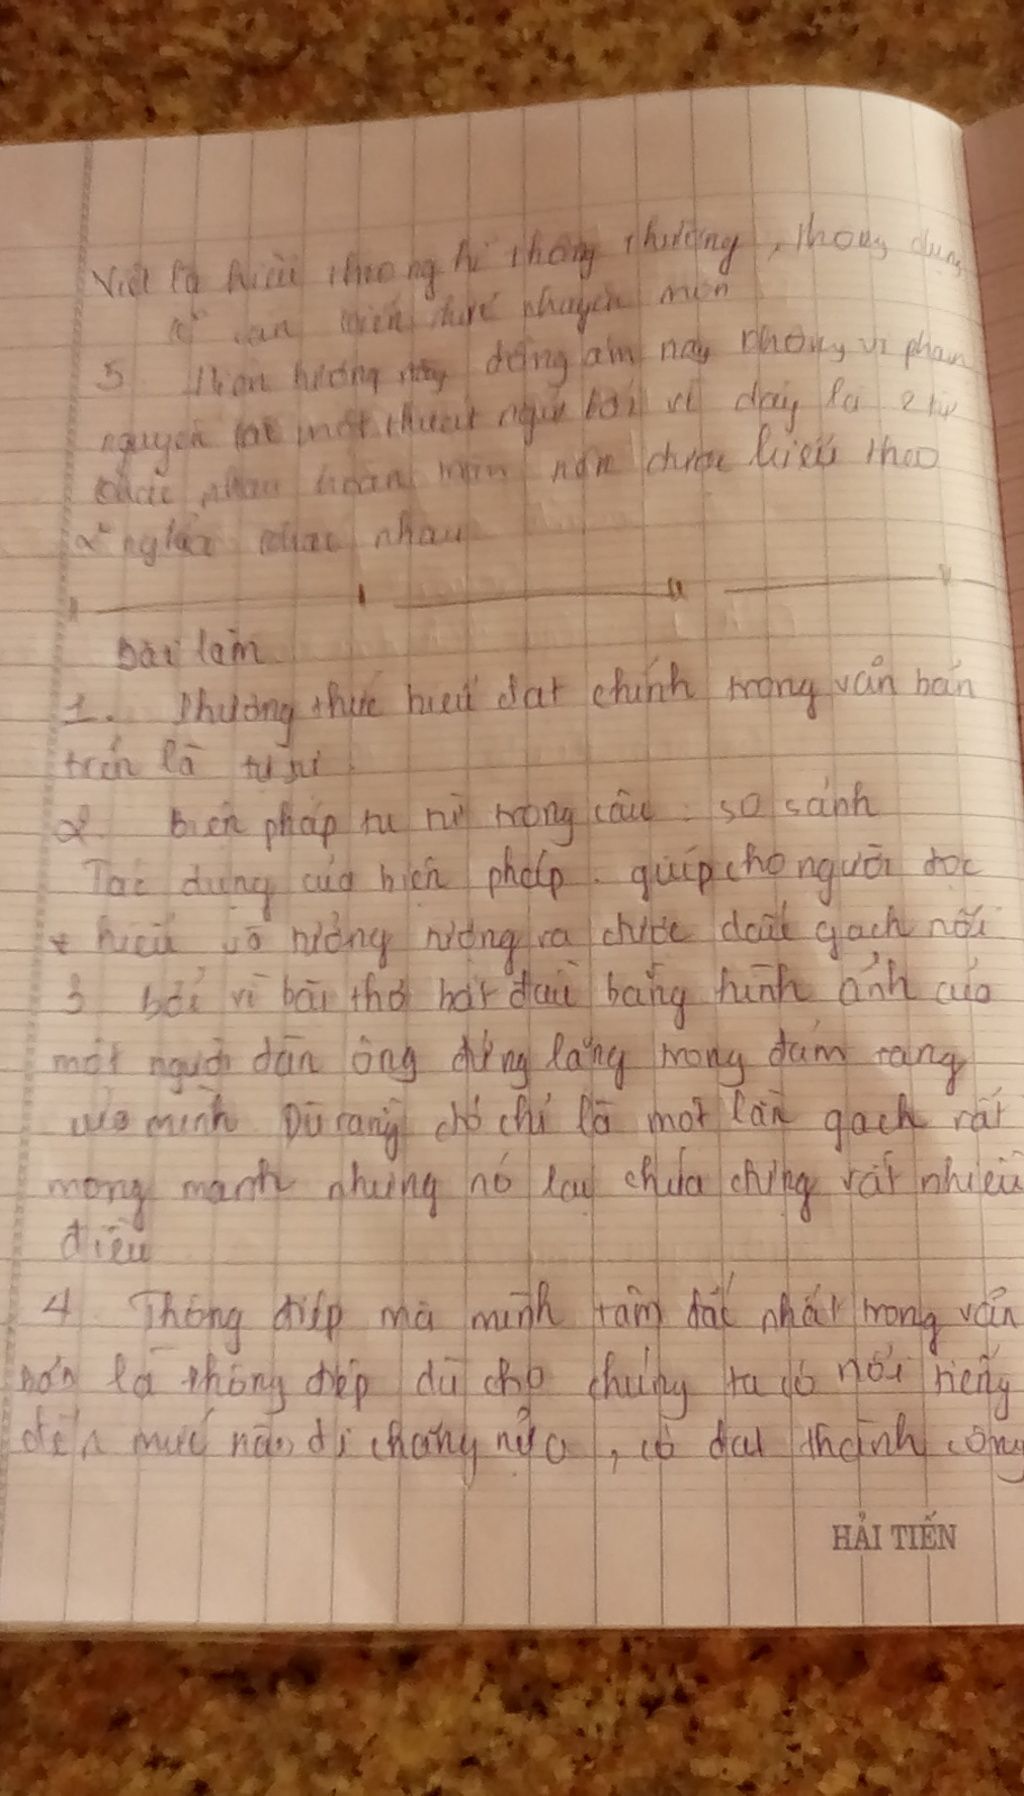 Việt là hiểu theo nghĩ thông thường, thông dụng
kiến thức chuyên môn
5 Hiện tượng này đồng âm này không vi phạm
nguyên tắc một thuật ngữ bởi vì đây là 2 từ
khác nhau hoàn toàn nên được hiểu theo
2 nghĩa khác nhau
Bài làm
1. Phương thức biểu đạt chính trong văn bản
trên là tự sự
2. biện pháp tu từ trong câu : so sánh
Tác dụng của biện pháp . giúp cho người đọc
hiểu và tưởng tượng ra chiếc cầu gạch nối
3 bởi vì bài thơ bắt đầu bằng hình ảnh của
một người đàn ông đứng lặng trong đám tang
của minh Dù rằng đó chỉ là một lằn gạch rất
mong manh nhưng nó lại chứa chứng rất nhiều
điều
4 Thông điệp mà mình tâm đắc nhất trong văn
bản là thông điệp dù cho chúng ta có nổi tiếng
đến mức nào đi chăng nữa , có đạt thành công
HẢI TIẾN